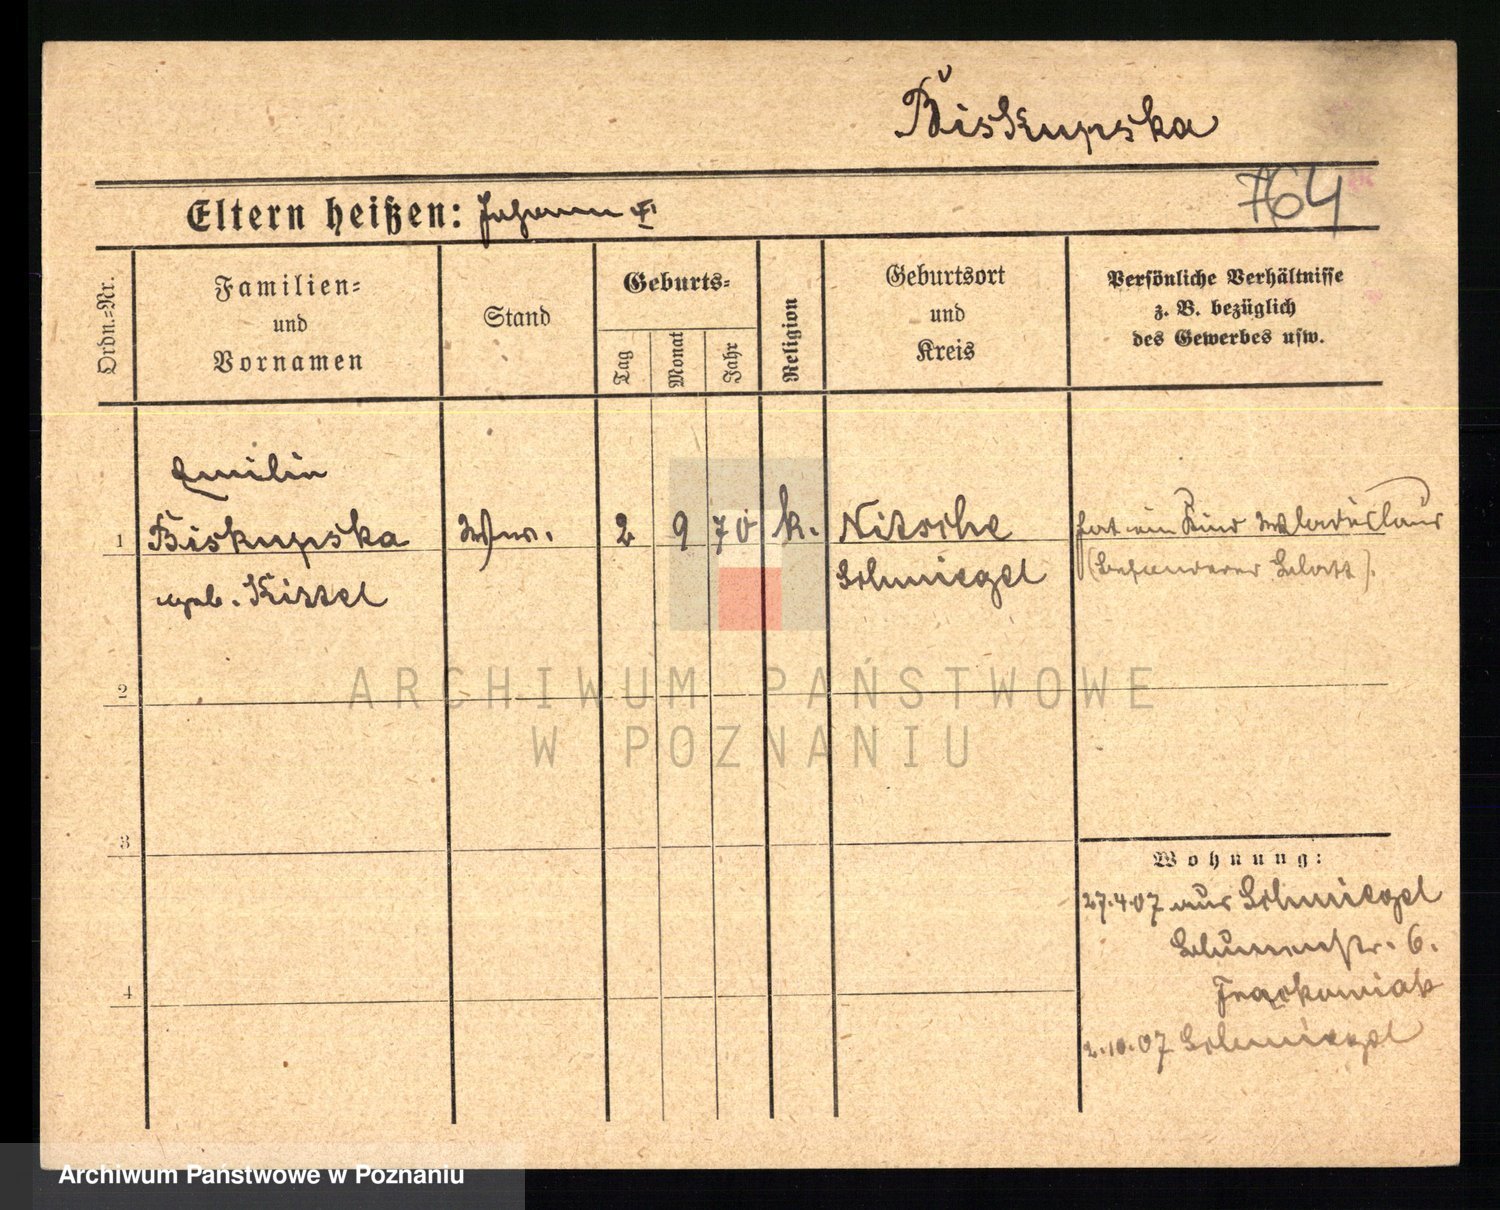 Biskupska
764
Eltern heißen: Johann
Ordn.=Nr.
Familien=
und
Vornamen
Stand
Geburts=
Tag
Monat
Jahr
Religion
Geburtsort
und
Kreis
Persönliche Verhältnisse
z. B. bezüglich
des Gewerbes usw.
Emilie
1 Biskupska Ww. 2 9 70 k. Nitsche hat ein Kind Wladislaus
geb. Kissel Schmiegel (besonderer Blatt).
2
ARCHIWUM PAŃSTWOWE
W POZNANIU
3
Wohnung:
27.4.07 aus Schmiegel
Blumenstr. 6.
4
2.10.07 Schmiegel
Archiwum Państwowe w Poznaniu